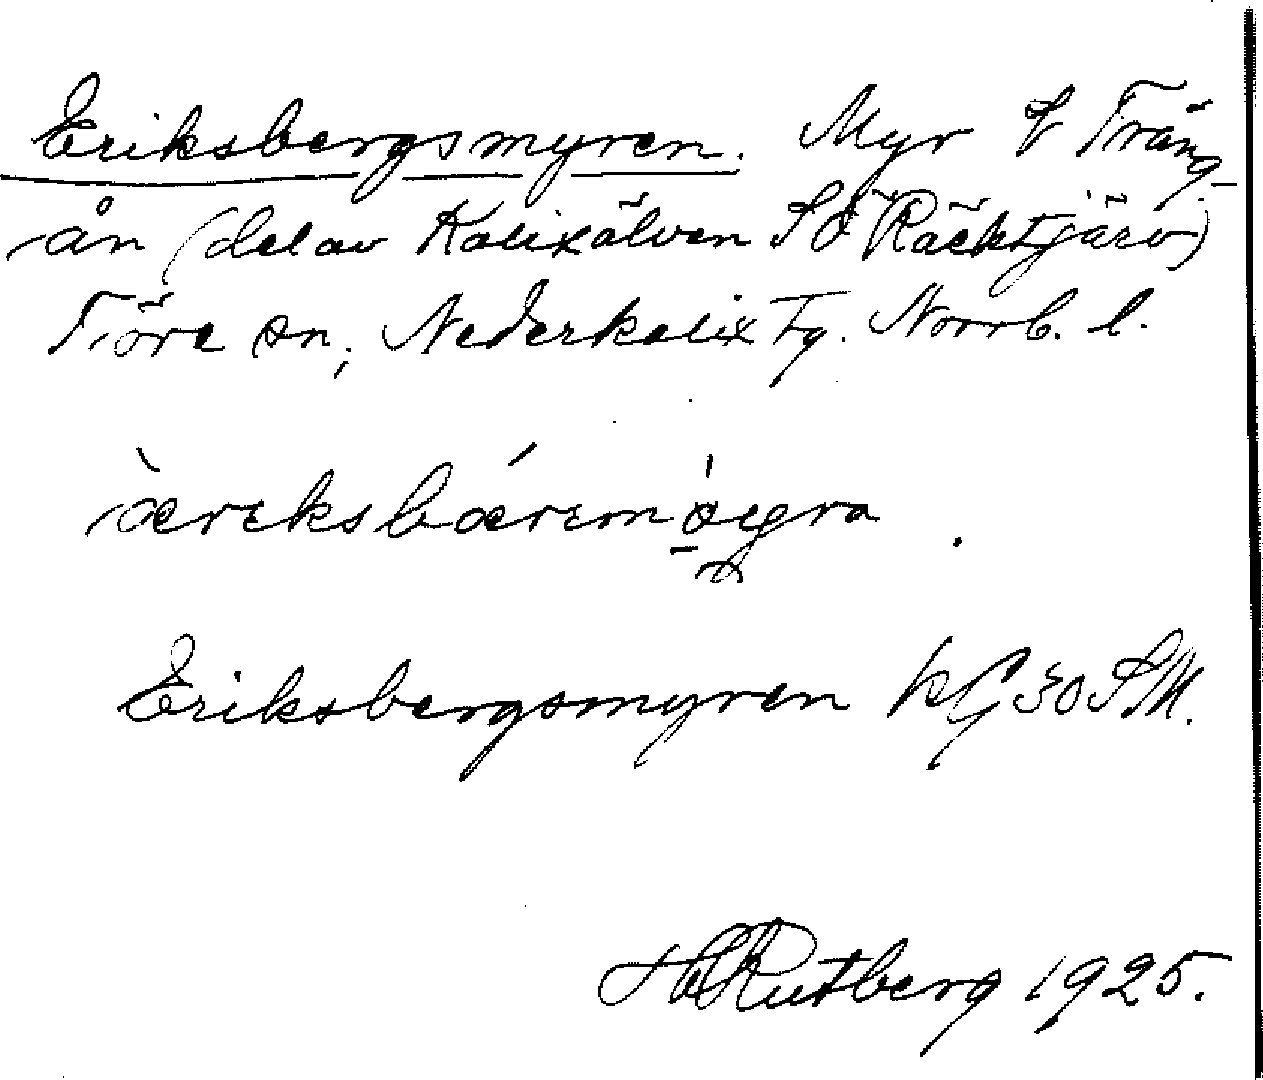 Eriksbergsmyren. Myr V Träng-
ån (del av Kalixälven SÖ Räktjärv)
Töre sn, Nederkalix Tg. Norrb. l.
Eriksbergsmyren kG 30 SM.
Rutberg 1925.